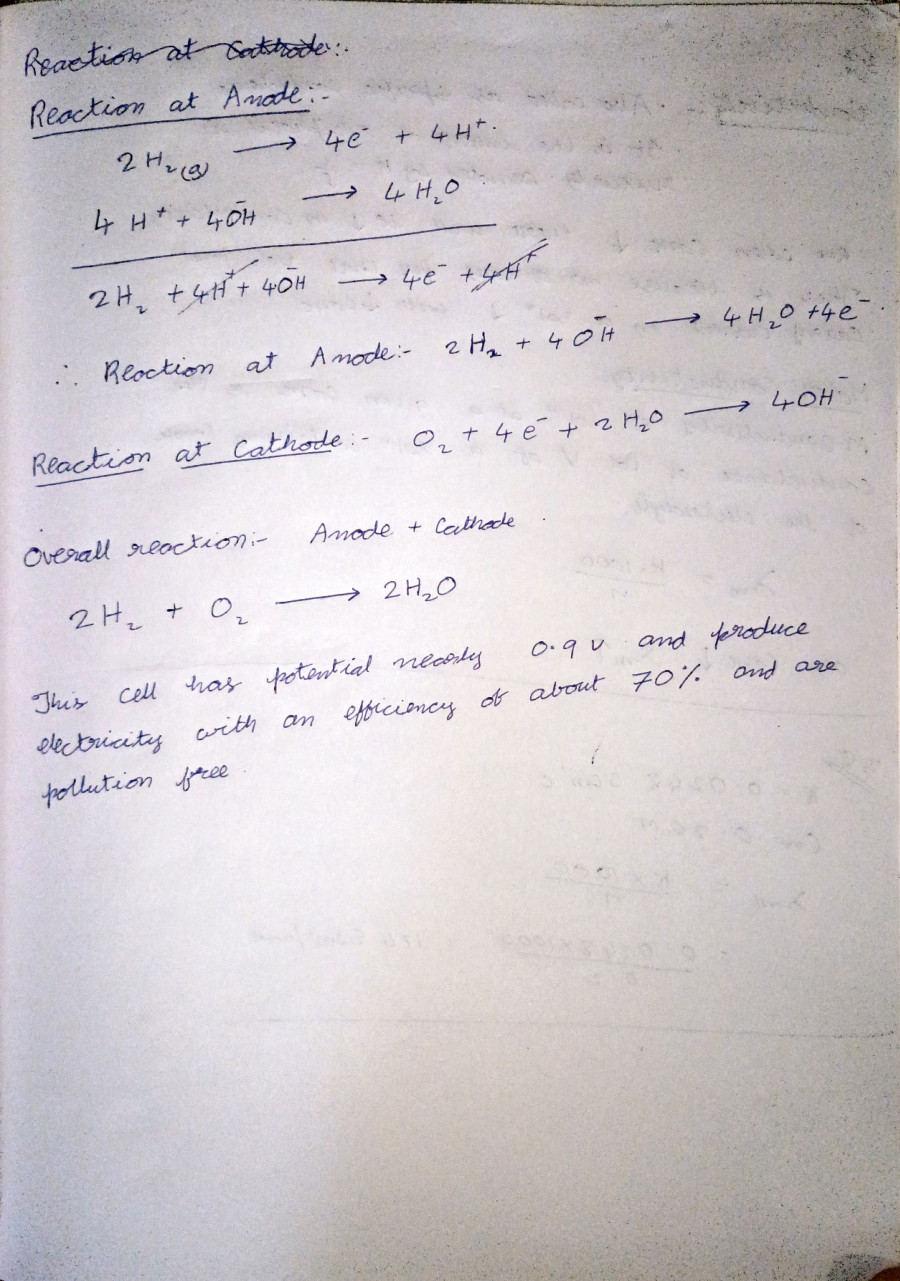 Reaction at Cathode:-
Reaction at Anode:-
2H₂(g) → 4e⁻ + 4H⁺.
4 H⁺ + 4OH⁻ → 4 H₂O
2H₂ + 4H⁺ + 4OH⁻ → 4e⁻ + 4H⁺
∴ Reaction at Anode:- 2H₂ + 4OH⁻ → 4H₂O + 4e⁻
Reaction at Cathode:- O₂ + 4e⁻ + 2H₂O → 4OH⁻
Overall reaction:- Anode + Cathode.
2H₂ + O₂ → 2H₂O
This cell has potential nearly 0.9 v and produce
electricity with an efficiency of about 70% and are
pollution free.